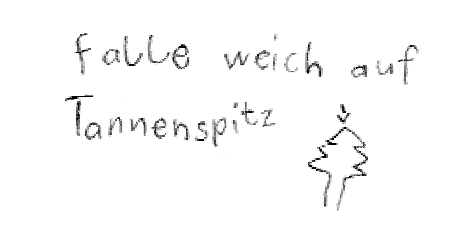 falle weich auf
Tannenspitz